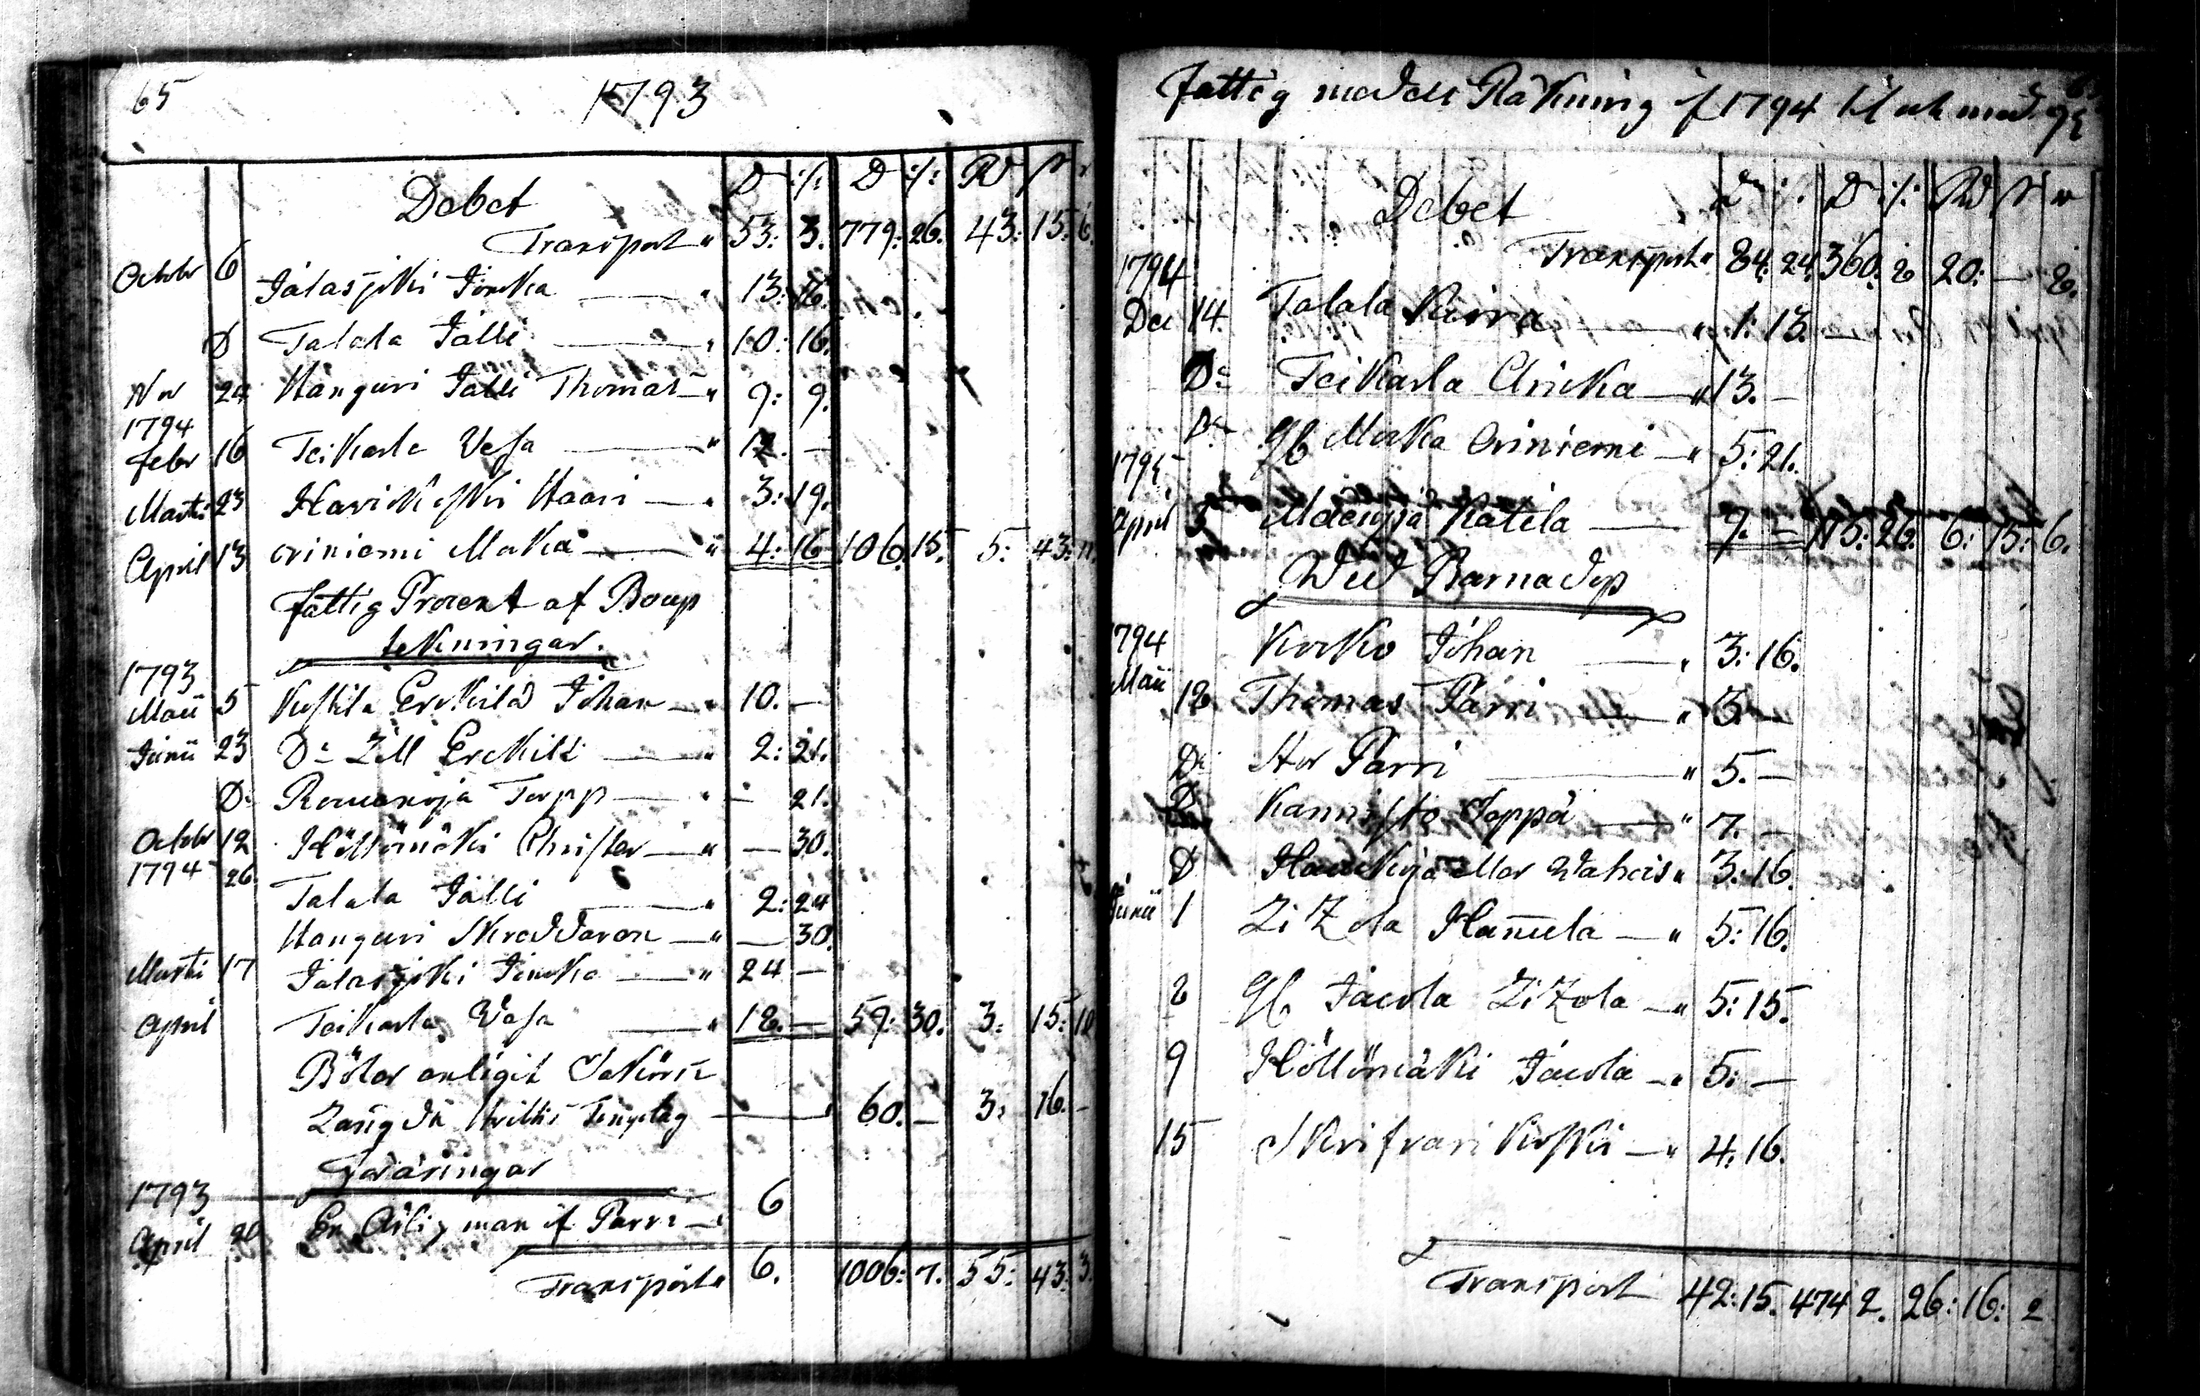 65 1793
Debet D :/: D :/: Rd ß r
Transport " 53: 3. 779: 26. 43: 15. 6.
Octobr 6 Jalasjoki Jöncka — " 13: 16.
D Talala Jälli — " 10: 16.
Nov 24 Hanguri Jälli Thomas — " 9: 9.
1794
Febr 16 Teikarla Vesa — " 12. —
Martii 23 Harickoski Haari — " 3: 19.
April 13 Oriniemi Mocka — " 4: 16 106. 15. 5: 43: 11.
Fattig Procent af Boup
tekningar.
1793
Maii 5 Koskila Erckilä Johan — " 10. —
Junii 23 Do Lill Erckilä — " 2: 21.
Do Romanoja Torpp — " — 21.
Octobr 12 Höllömäki Christer — " — 30.
1794 26 Talala Jälli — " 2: 24
Hanguri Skreddaren — " — 30.
Martii 17 Jalasjoki Jöncka — " 24 —
April Teikarla Vesa — " 18. — 59: 30. 3: 15: 10
Böter anligit
60. — 3: 16. —
1793
April 20 En man if Parri — " 6
Transport " 6. 1006: 7. 55: 43. 3.
Fattig medels Räkning if 1794 til och med 95
Debet D :/: D :/: Rd ß r
Transport " 84: 24. 360. 8 20: — 8.
1794
Dec 14. Talala Kaira — " 1: 13. —
Do Teikarla Ericka — " 13. —
Do Gb Mocka Oriniemi — " 5: 21.
1795
April 5 Mäenpä Katila — 9. — 113: 26. 6: 15: 6.
Wid Barnadop
1794 Korko Johan — " 3: 16.
Maii 18 Thomas Parri — " 3. —
Do Stor Parri — " 5. —
D Kannisto Seppä — " 7. —
D Haukioja Mor Wahais " 3: 16.
Junii 1 Litzola Hannula — " 5: 16.
2 Gb Jacola Litzola — " 5: 15.
9 Höllömäki Jacola — " 5: —
15 Skrifvari Koski — " 4: 16.
Transport 42: 15. 474 2. 26: 16: 2